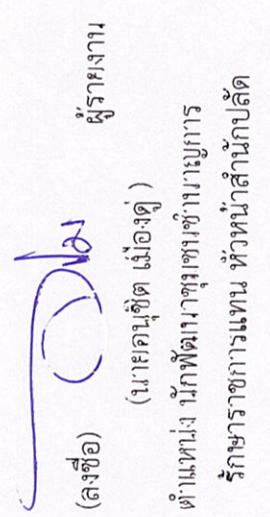 (ลงชื่อ) ผู้รายงาน
(นายอนุชิต เมืองคู่ )
ตำแหน่ง นักพัฒนาชุมชนชำนาญการ
รักษาราชการแทน หัวหน้าสำนักปลัด